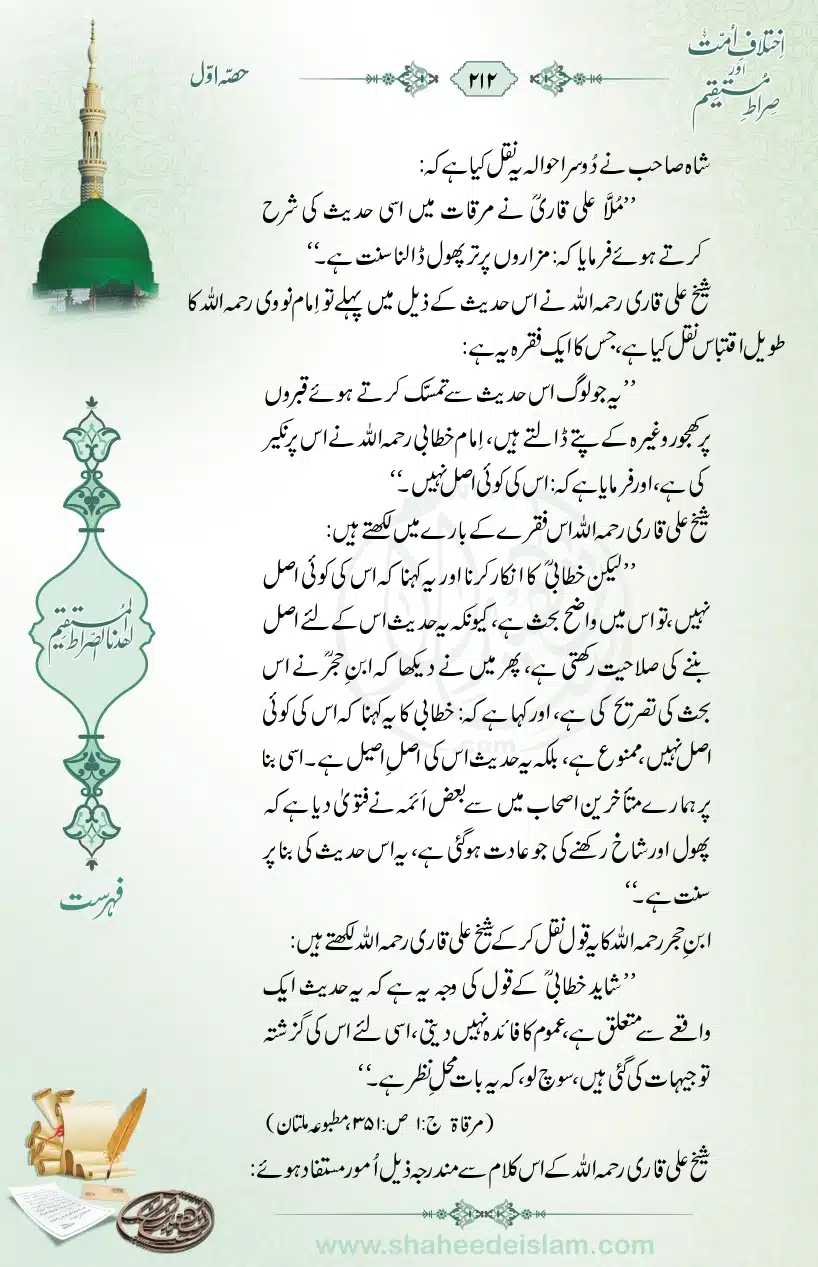 اِختلافِ اُمّت
اور
صراطِ مُستقیم
۲۱۲
حصّہ اوّل
شاہ صاحب نے دُوسرا حوالہ یہ نقل کیا ہے کہ:
’’مُلَّا علی قاریؒ نے مرقات میں اسی حدیث کی شرح
کرتے ہوئے فرمایا کہ: مزاروں پر تر پھول ڈالنا سنت ہے۔‘‘
شیخ علی قاری رحمہ اللہ نے اس حدیث کے ذیل میں پہلے تو اِمام نووی رحمہ اللہ کا
طویل اقتباس نقل کیا ہے، جس کا ایک فقرہ یہ ہے:
’’یہ جو لوگ اس حدیث سے تمسّک کرتے ہوئے قبروں
پر کھجور وغیرہ کے پتے ڈالتے ہیں، اِمام خطابی رحمہ اللہ نے اس پر نکیر
کی ہے، اور فرمایا ہے کہ: اس کی کوئی اصل نہیں۔‘‘
شیخ علی قاری رحمہ اللہ اس فقرے کے بارے میں لکھتے ہیں:
’’لیکن خطابیؒ کا انکار کرنا اور یہ کہنا کہ اس کی کوئی اصل
نہیں، تو اس میں واضح بحث ہے، کیونکہ یہ حدیث اس کے لئے اصل
بننے کی صلاحیت رکھتی ہے، پھر میں نے دیکھا کہ ابنِ حجرؒ نے اس
بحث کی تصریح کی ہے، اور کہا ہے کہ: خطابی کا یہ کہنا کہ اس کی کوئی
اصل نہیں، ممنوع ہے، بلکہ یہ حدیث اس کی اصلِ اصیل ہے۔ اسی بنا
پر ہمارے متأخرین اصحاب میں سے بعض اَئمہ نے فتویٰ دیا ہے کہ
پھول اور شاخ رکھنے کی جو عادت ہوگئی ہے، یہ اس حدیث کی بنا پر
سنت ہے۔‘‘
ابنِ حجر رحمہ اللہ کا یہ قول نقل کرکے شیخ علی قاری رحمہ اللہ لکھتے ہیں:
’’شاید خطابیؒ کے قول کی وجہ یہ ہے کہ یہ حدیث ایک
واقعے سے متعلق ہے، عموم کا فائدہ نہیں دیتی، اسی لئے اس کی گزشتہ
توجیہات کی گئی ہیں، سوچ لو، کہ یہ بات محلِ نظر ہے۔‘‘
(مرقاۃ ج:۱ ص:۳۵۱، مطبوعہ ملتان)
شیخ علی قاری رحمہ اللہ کے اس کلام سے مندرجہ ذیل اُمور مستفاد ہوئے:
اھدنا الصّراط المُستقیم
فہرست
www.shaheedeislam.com